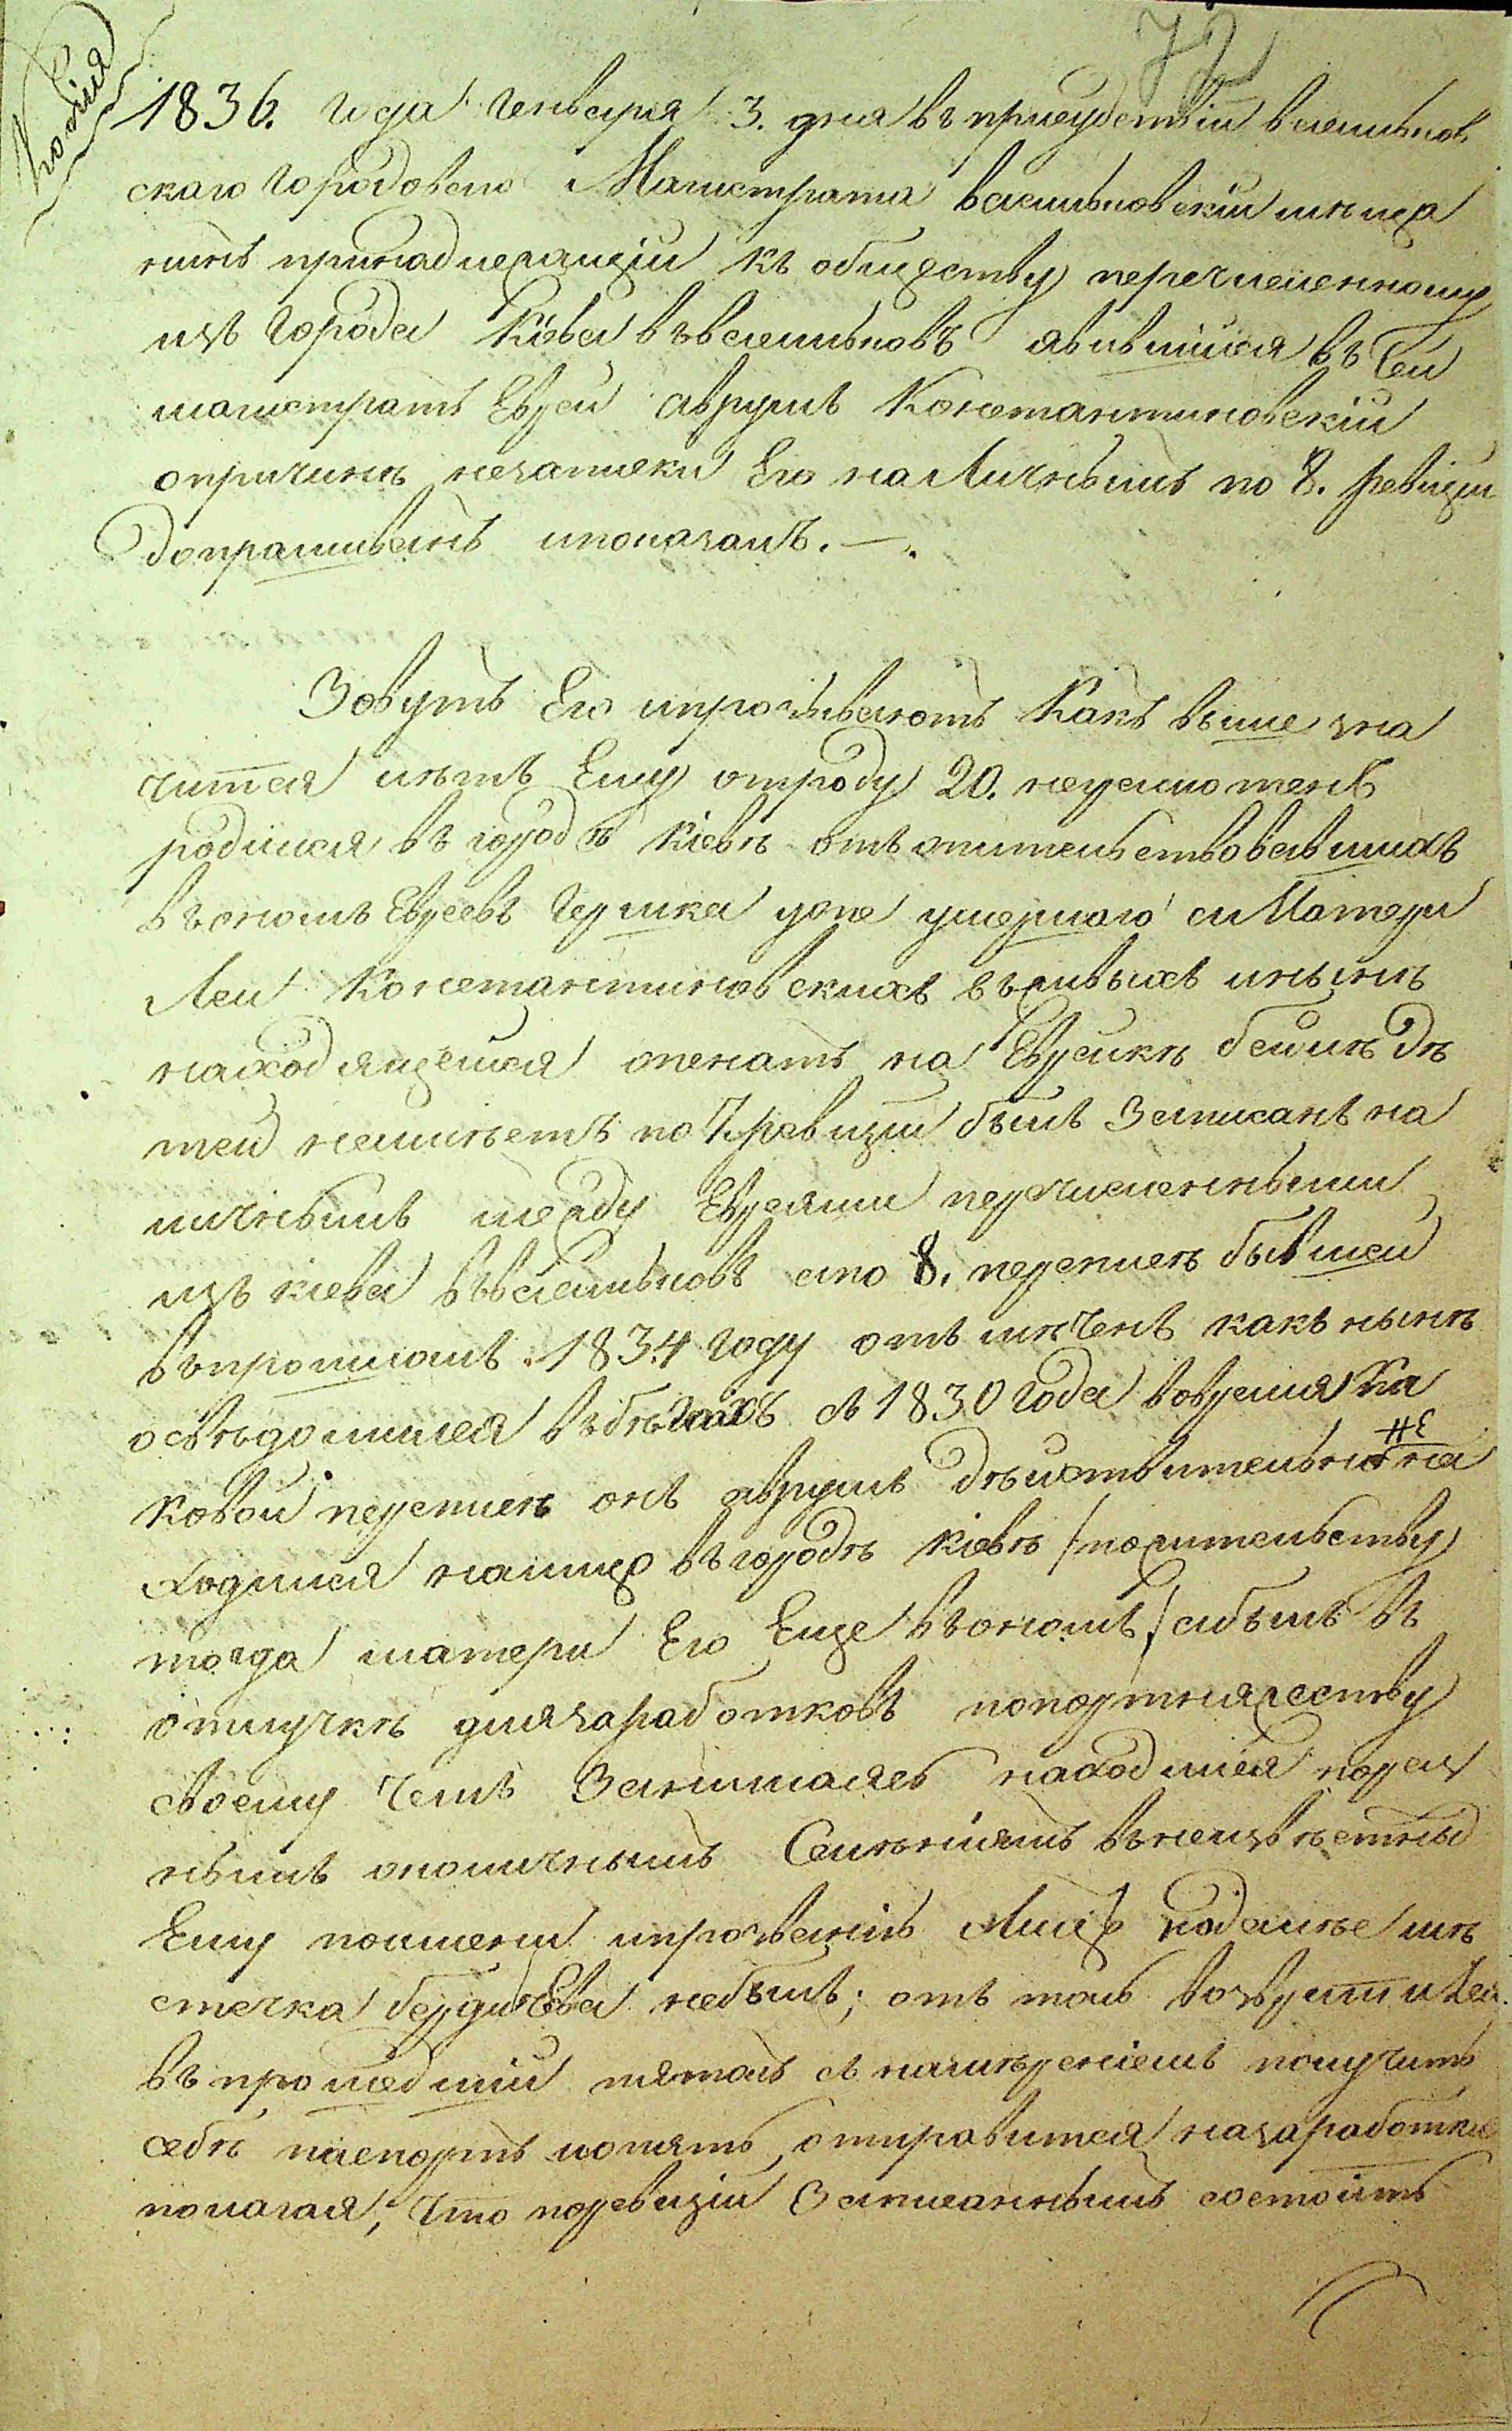 Копія
72
1836. года Генваря 3. дня въ присудствіи васильков
скаго городоваго Магистрата васильковскій мѣща
нинъ принадлежащій къ обществу перечисленному
изъ города Кіева въ васильковъ явившійся въ Сей
магистратъ Еврей Аврумъ Константиновскій
опричинѣ незаписки Его на Личнымъ по 8. ревизіи
допрашиванъ ипоказалъ. —
Зовутъ Его ипрозываютъ Какъ выше зна
чится лѣтъ Ему отроду 20. неуспоменъ
родился въ городѣ Кіевѣ отъ жительствовавшихъ
въ ономъ Евреевъ Гершка уже умершаго и Матери
Леи Константиновскихъ въживыхъ инынѣ
находящейся женатъ на Еврейкѣ Бейлѣ дѣ
тей неимѣетъ по 7. ревизіи былъ Записанъ на
личнымъ между Евреями перечисленными
изъ кіева въ васильковъ апо 8. переписѣ бывшей
въ прошломъ 1834 году отмѣченъ какъ нынѣ
освѣдомился въ бѣгахъ съ 1830 года вовремя Ка
ковой переписѣ онъ Аврумъ дѣйствительно не на
ходился налицо въ городѣ Кіевѣ /пожительству
тогда матери Его Еще въ ономъ/ абылъ въ
отлучкѣ для заработковъ попортняжеству
своему Чемъ Занимаясь находился поразнымъ
нымъ околичнымъ Селеніямъ въ неизвѣстныхъ
Ему поимени ипрозванію Лицъ подалѣе мѣ
стечка Бердичева небылъ; оттоль возвратился
въ прошедшій пятокъ съ намѣреніемъ получить
себѣ паспортъ иопять отправится назаработки
полагая, Что поревизіи Записаннымъ состоитъ